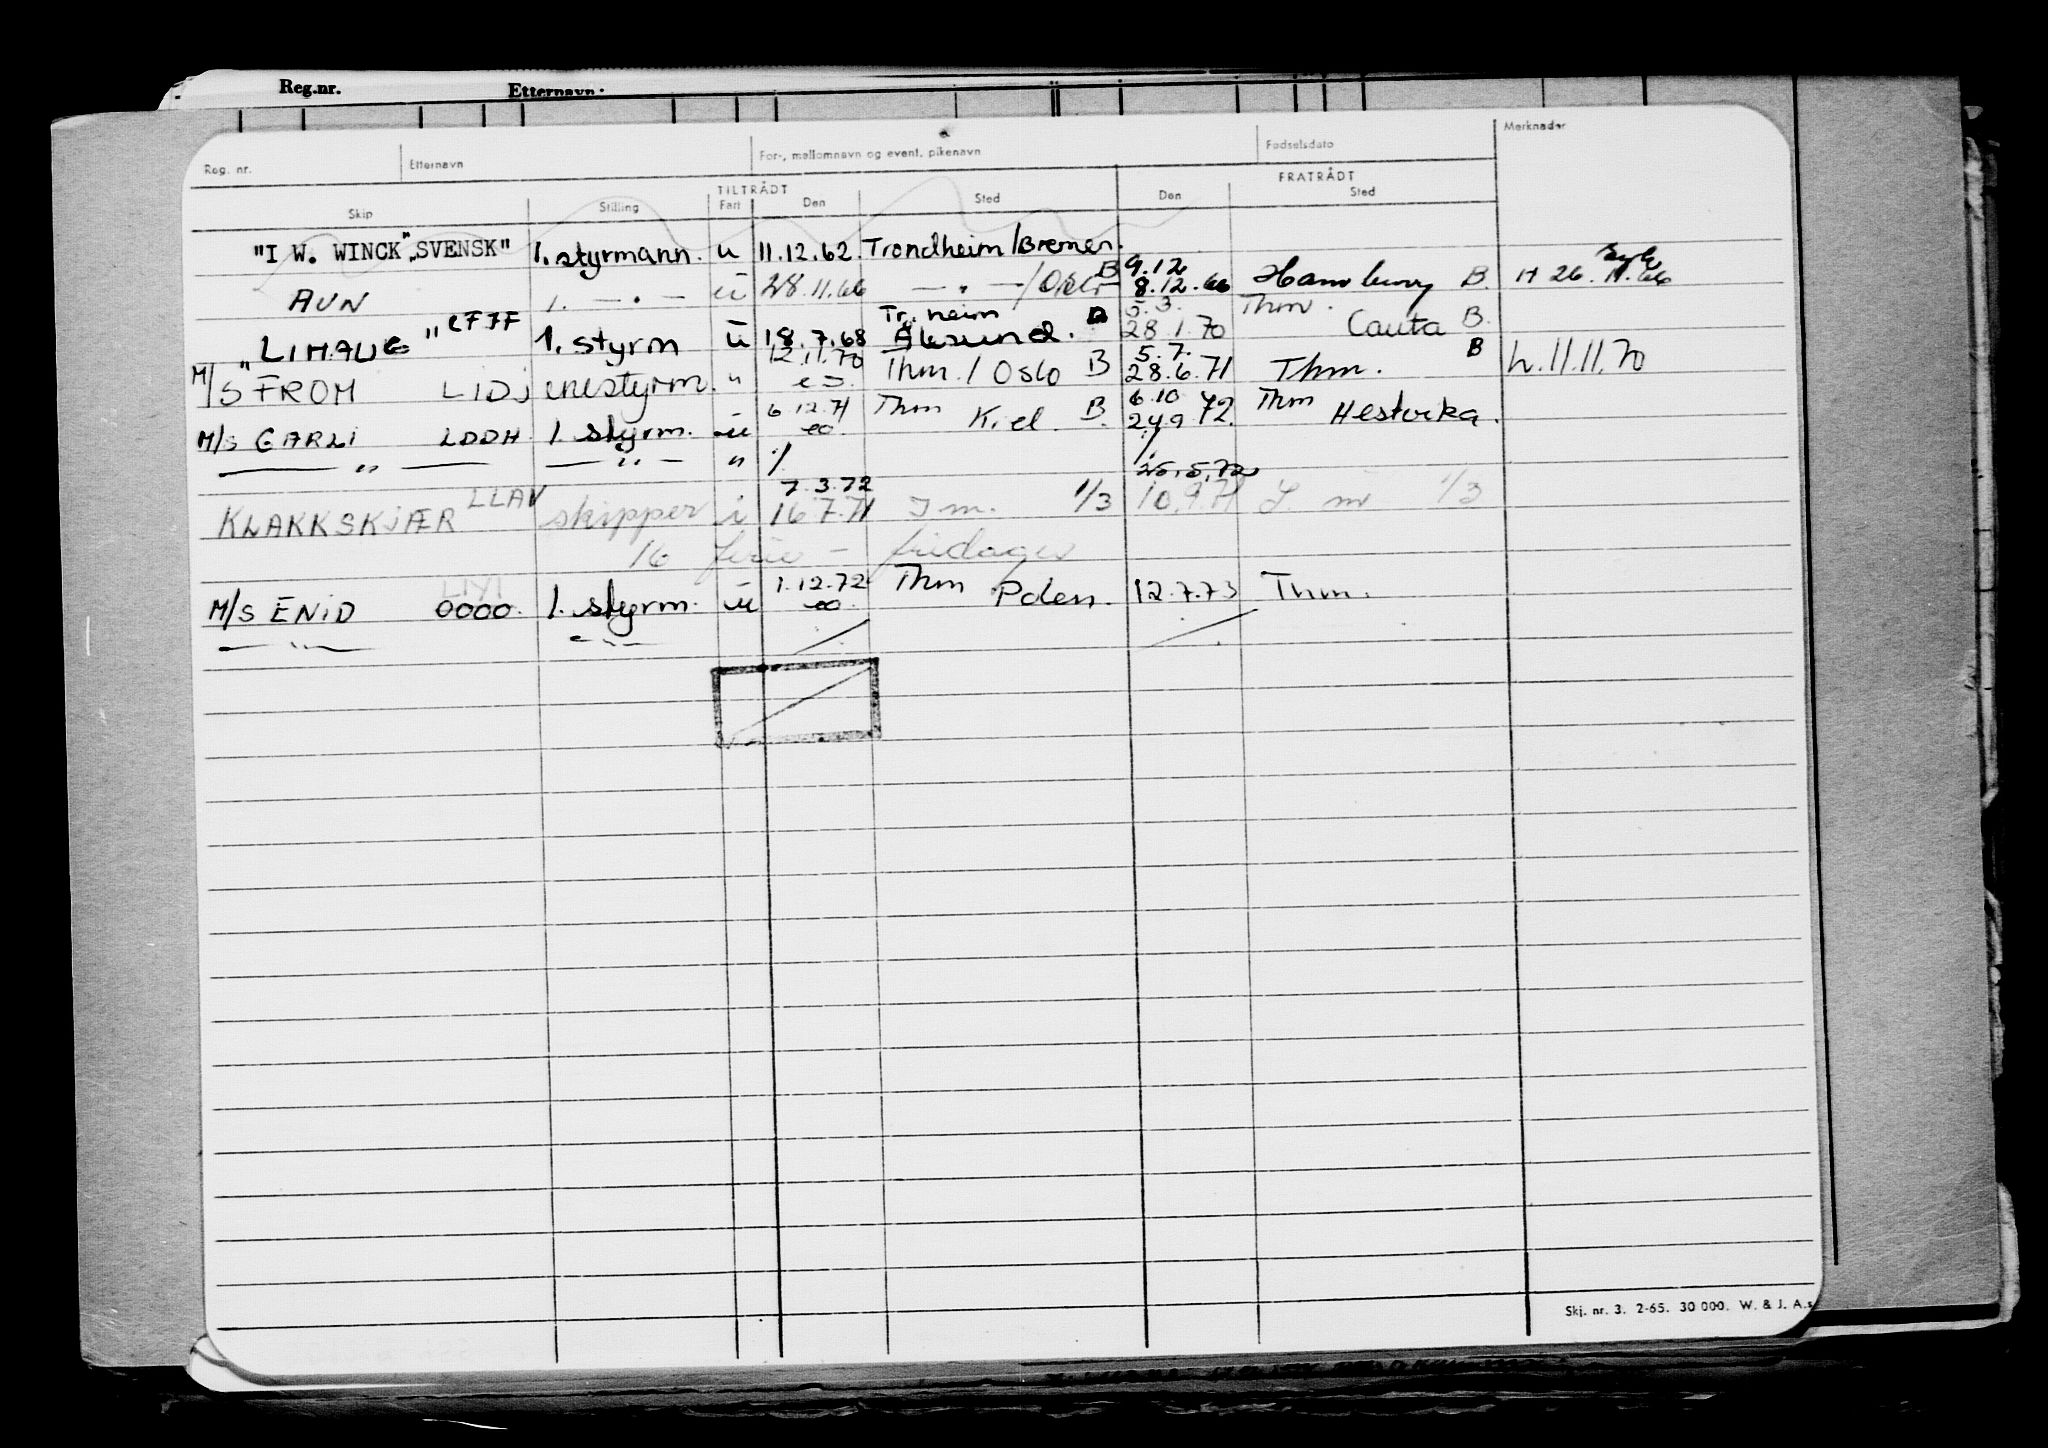 Reg.nr. Etternavn:
Reg. nr. Etternavn For-, mellomnavn og event. pikenavn Fødselsdato Merknader
TILTRÅDT FRATRÅDT
Skip Stilling Fart Den Sted Den Sted
"I W. WINCK" "SVENSK" 1. styrmann. u 11.12.62. Trondheim/Bremen.
9.12
AUN 1. — " — u 28.11.66 — " — /Oslo B 8.12.66 Hamburg B. H 26.11.66
Tr.heim 5.3. Thm.
"LIMAUG" LFJF 1. styrm u 18.7.68 Ålesund. B 28.1.70 Ceuta B.
12.11.70 5.7. B
M/S FROM LIDJ enestyrm. " Thm. / Oslo B 28.6.71 Thm. h.11.11.70
6.12.71 Thm 6.10 Thm
M/S GARLI LDDH 1. styrm. u Kiel. B. 24.9.72. Hestvika.
— " — — " — " / /
7.3.72 25.5.72
KLAKKSKJÆR LLAV skipper i 16.7.71 T m. 1/3 10.9.71 1/3
16 ferie - fridager
LIYI 1.12.72 Thm
M/S ENID 0000. 1. styrm. u Polen. 12.7.73 Thm.
— " — — " —
Skj. nr. 3. 2-65. 30 000. W. & J. A.s